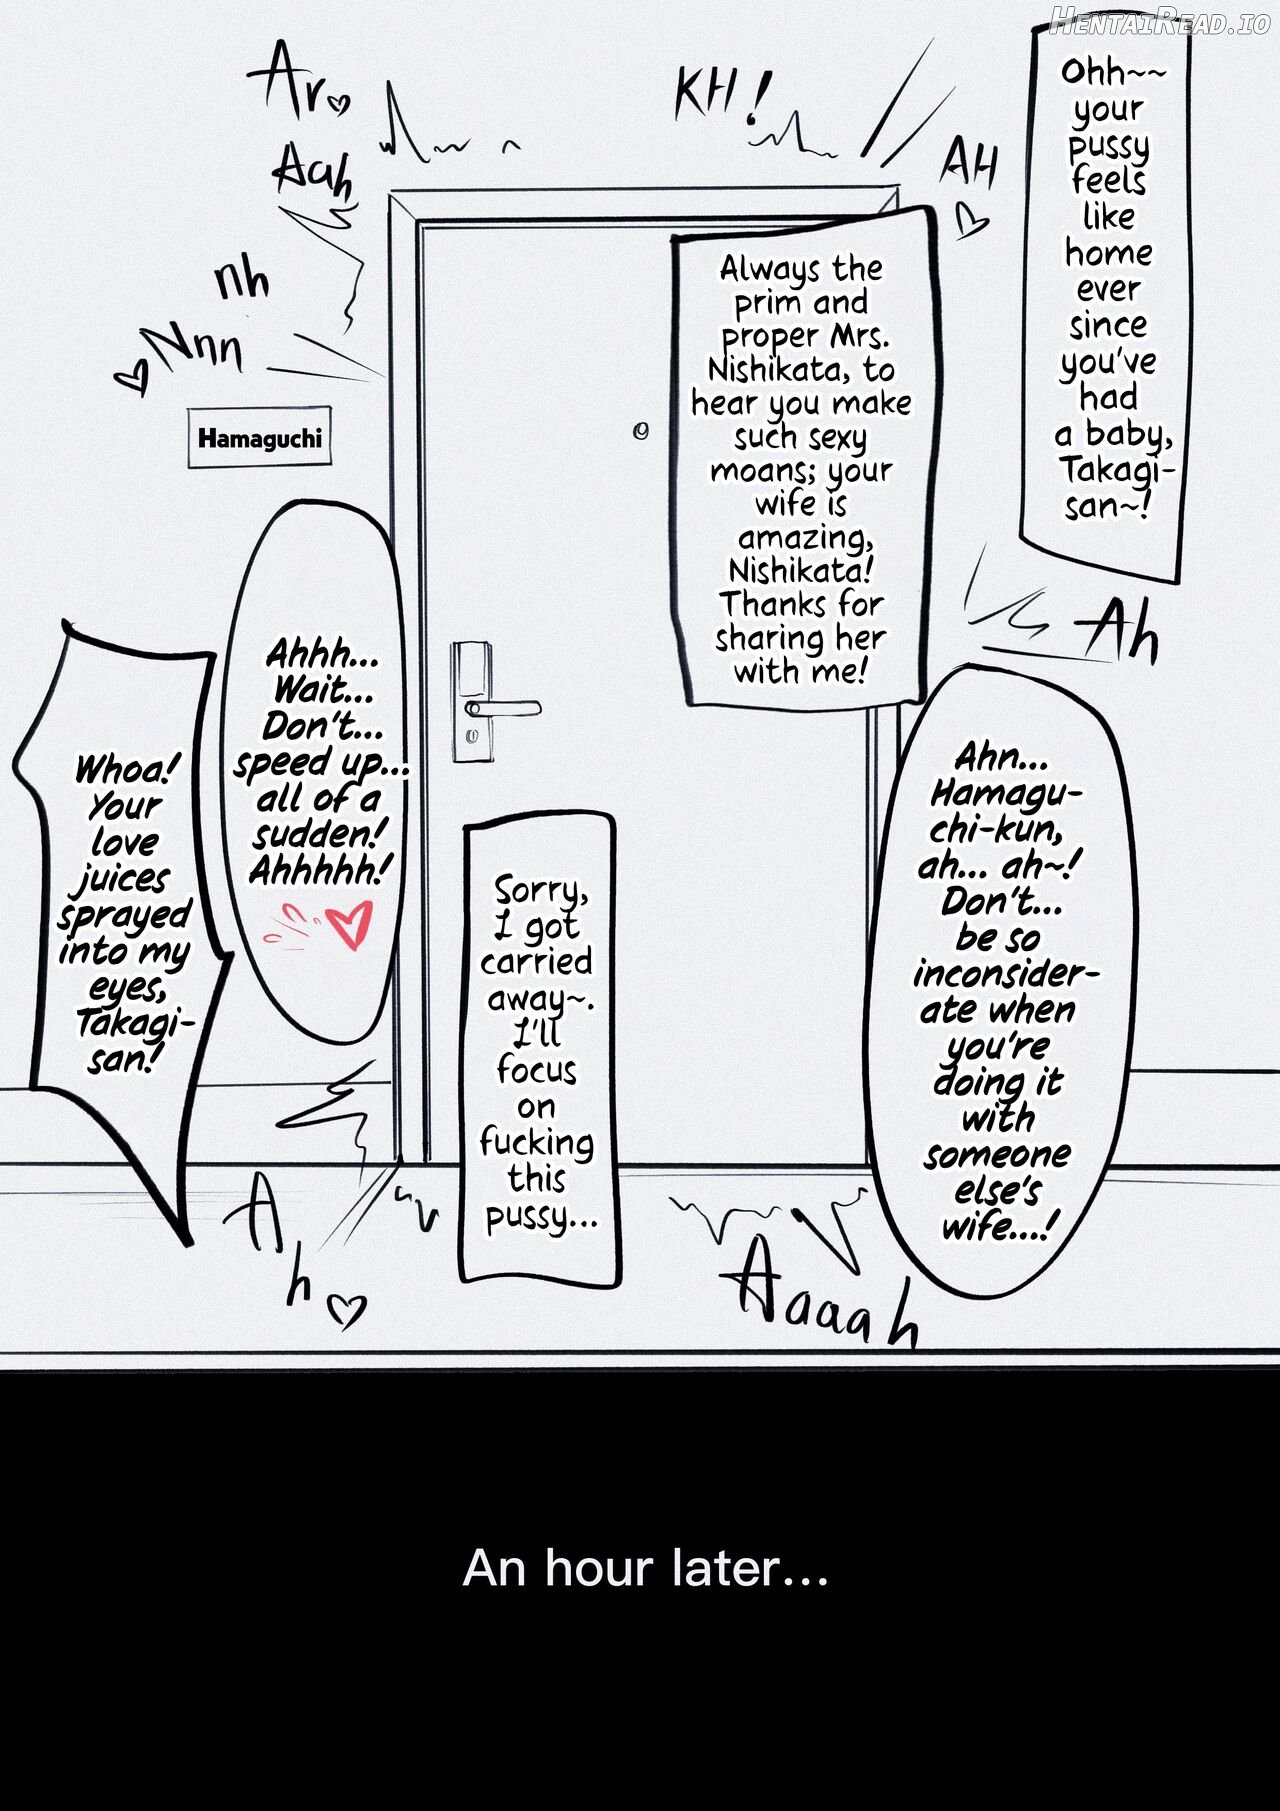 HENTAIREAD.IO
Ohh~~
your
pussy
feels
like
home
ever
since
you've
had
a baby,
Takagi-
san~!
Ar
KH!
AH
Aah
nh
Nnn
Always the
prim and
proper Mrs.
Nishikata, to
hear you make
such sexy
moans; your
wife is
amazing,
Nishikata!
Thanks for
sharing her
with me!
Hamaguchi
Ah
Ahn...
Hamagu-
chi-kun,
ah... ah~!
Don't...
be so
inconsider-
ate when
you're
doing it
with
someone
else's
wife...!
Sorry,
I got
carried
away~.
I'll
focus
on
fucking
this
pussy...
Ahhh...
Wait...
Don't...
speed up...
all of a
sudden!
Ahhhhh!
Whoa!
Your
love
juices
sprayed
into my
eyes,
Takagi-
san!
Ah
Aaaah
An hour later...